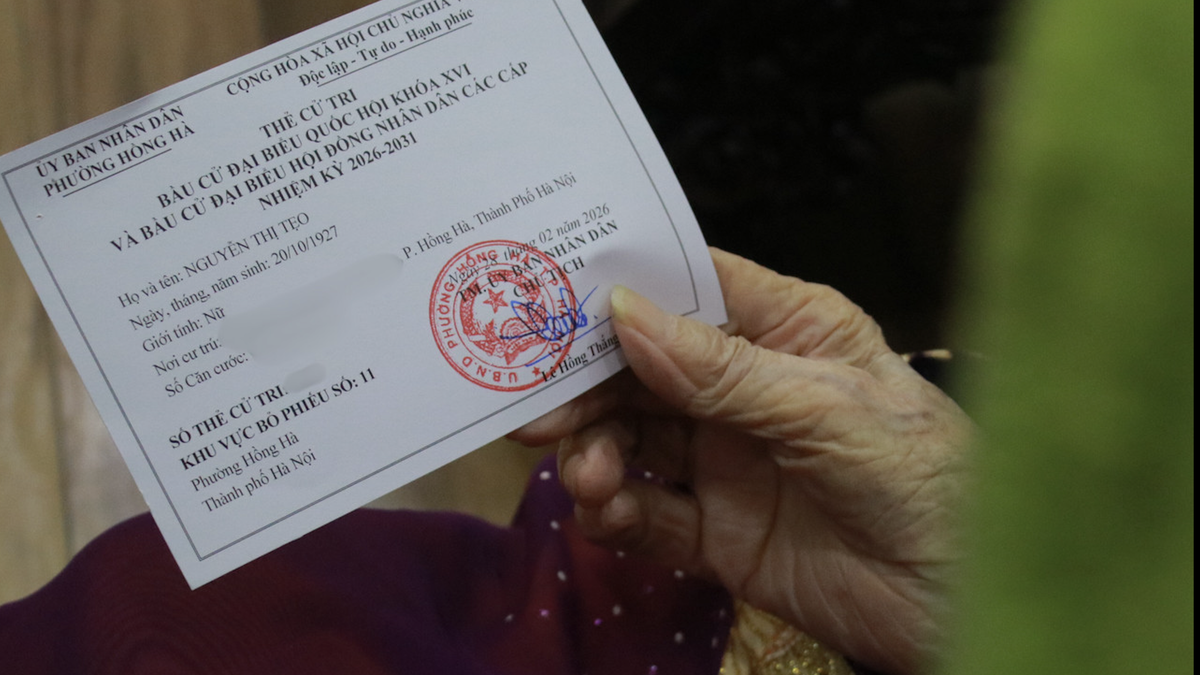 ỦY BAN NHÂN DÂN
PHƯỜNG HỒNG HÀ
CỘNG HÒA XÃ HỘI CHỦ NGHĨA
Độc lập - Tự do - Hạnh phúc
THẺ CỬ TRI
BẦU CỬ ĐẠI BIỂU QUỐC HỘI KHÓA XVI
VÀ BẦU CỬ ĐẠI BIỂU HỘI ĐỒNG NHÂN DÂN CÁC CẤP
NHIỆM KỲ 2026-2031
Họ và tên: NGUYỄN THỊ TẸO
Ngày, tháng, năm sinh: 20/10/1927
Giới tính: Nữ
Nơi cư trú:
Số Căn cước:
SỐ THẺ CỬ TRI:
KHU VỰC BỎ PHIẾU SỐ: 11
Phường Hồng Hà
Thành phố Hà Nội
P. Hồng Hà, Thành Phố Hà Nội
Ngày tháng 02 năm 2026
TM. ỦY BAN NHÂN DÂN
CHỦ TỊCH
U.B.N.D PHƯỜNG HỒNG HÀ
Lê Hồng Thắng